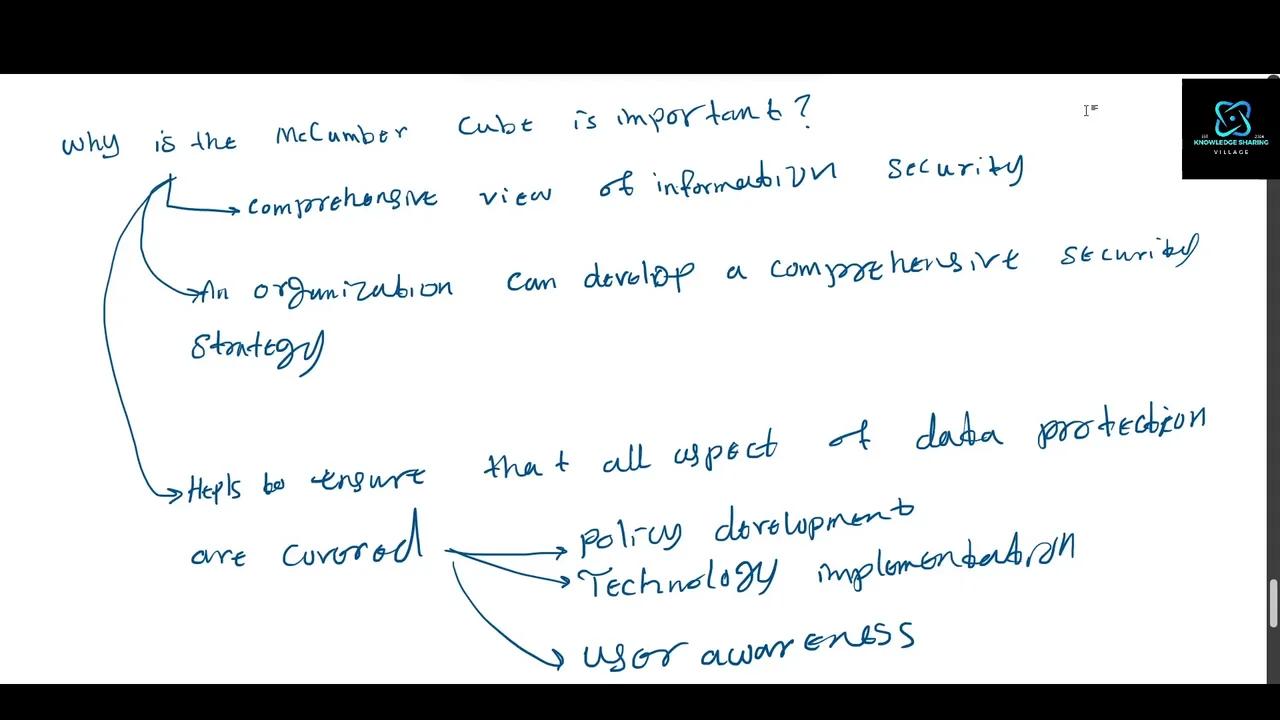 Why is the McCumber Cube is important?
comprehensive view of information security
An organization can develop a comprehensive security
strategy
Hepls to ensure that all aspect of data protection
are covered
Policy development
Technology implementation
user awareness
KNOWLEDGE SHARING
VILLAGE